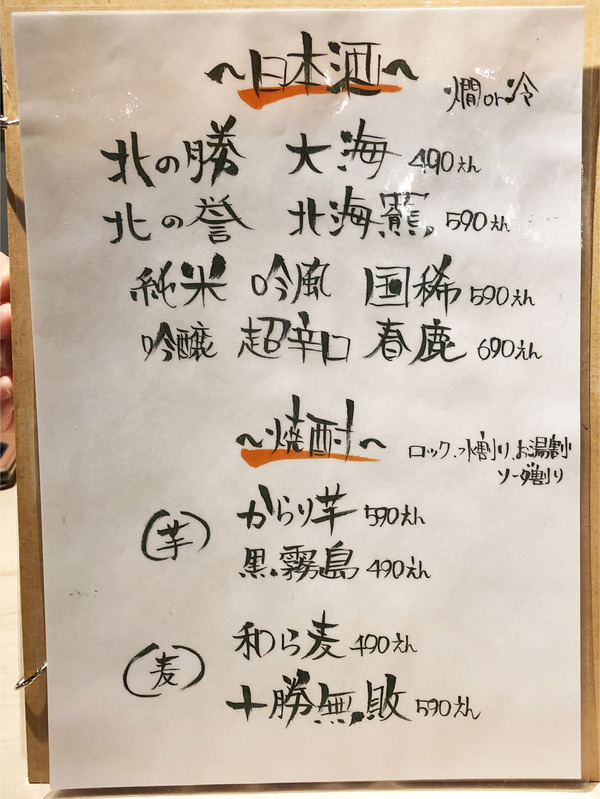 ～日本酒～
燗or冷
北の勝 大海 490えん
北の誉 北海鶴 590えん
純米 吟風 国稀 590えん
吟醸 超辛口 春鹿 690えん
～焼酎～
ロック、水割り、お湯割
ソーダ割り
芋
からり芋 590えん
黒霧島 490えん
麦
和ら麦 490えん
十勝無敗 590えん